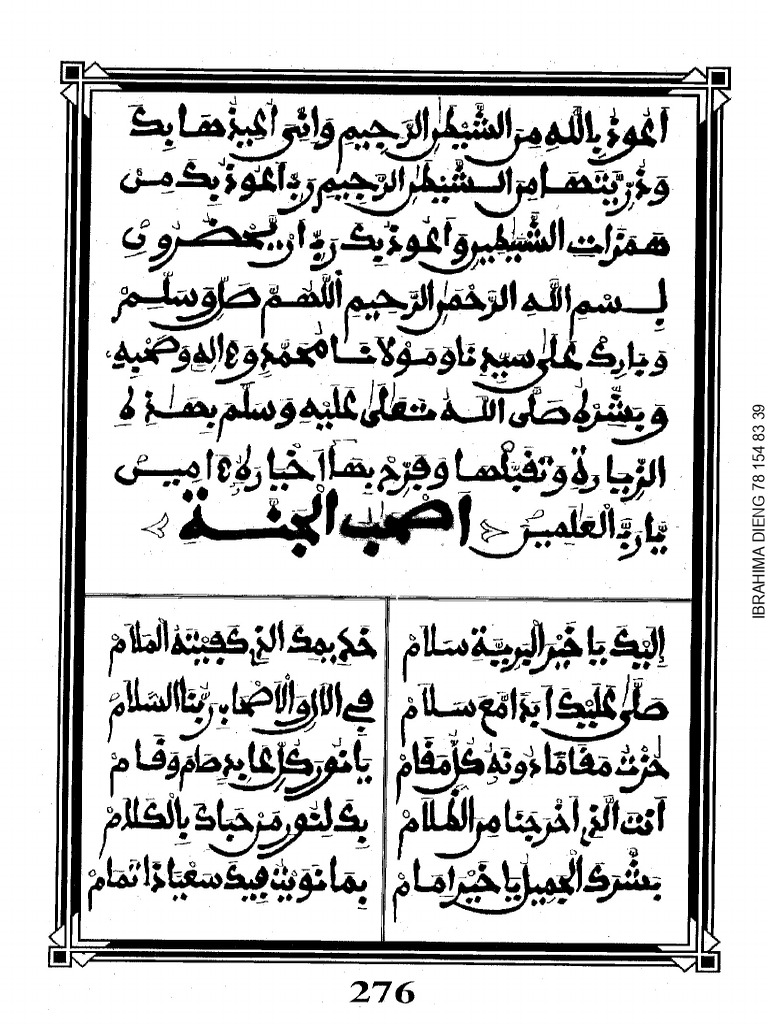 أعوذ بالله من الشيطن الرجيم وإني أعيذها بك
وذريتها من الشيطن الرجيم رب أعوذ بك من
همزات الشيطين وأعوذ بك رب أن يحضرون
بسم الله الرحمن الرحيم اللهم صل وسلم
وبارك على سيدنا ومولانا محمد وءاله وصحبه
وبشره صلى الله تعلى عليه وسلم بهذه
الزيارة وتقبلها وفرح بها أخياره ءامين
يا رب العلمين
أصحب الجنة
إليك يا خير البرية سلام خديمك الذي كفيته الملام
صلى عليك أبدا مع سلام في الآل والأصحاب ربنا السلام
حزت مقاما دونه كل مقام يا نور كل عابد صام وقام
أنت الذي أخرجنا من الظلام بك لنور من حباك بالكلام
بشرك الجميل يا خير إمام بما نويت فيك سعيا ذا تمام
276
IBRAHIMA DIENG 78 154 83 39